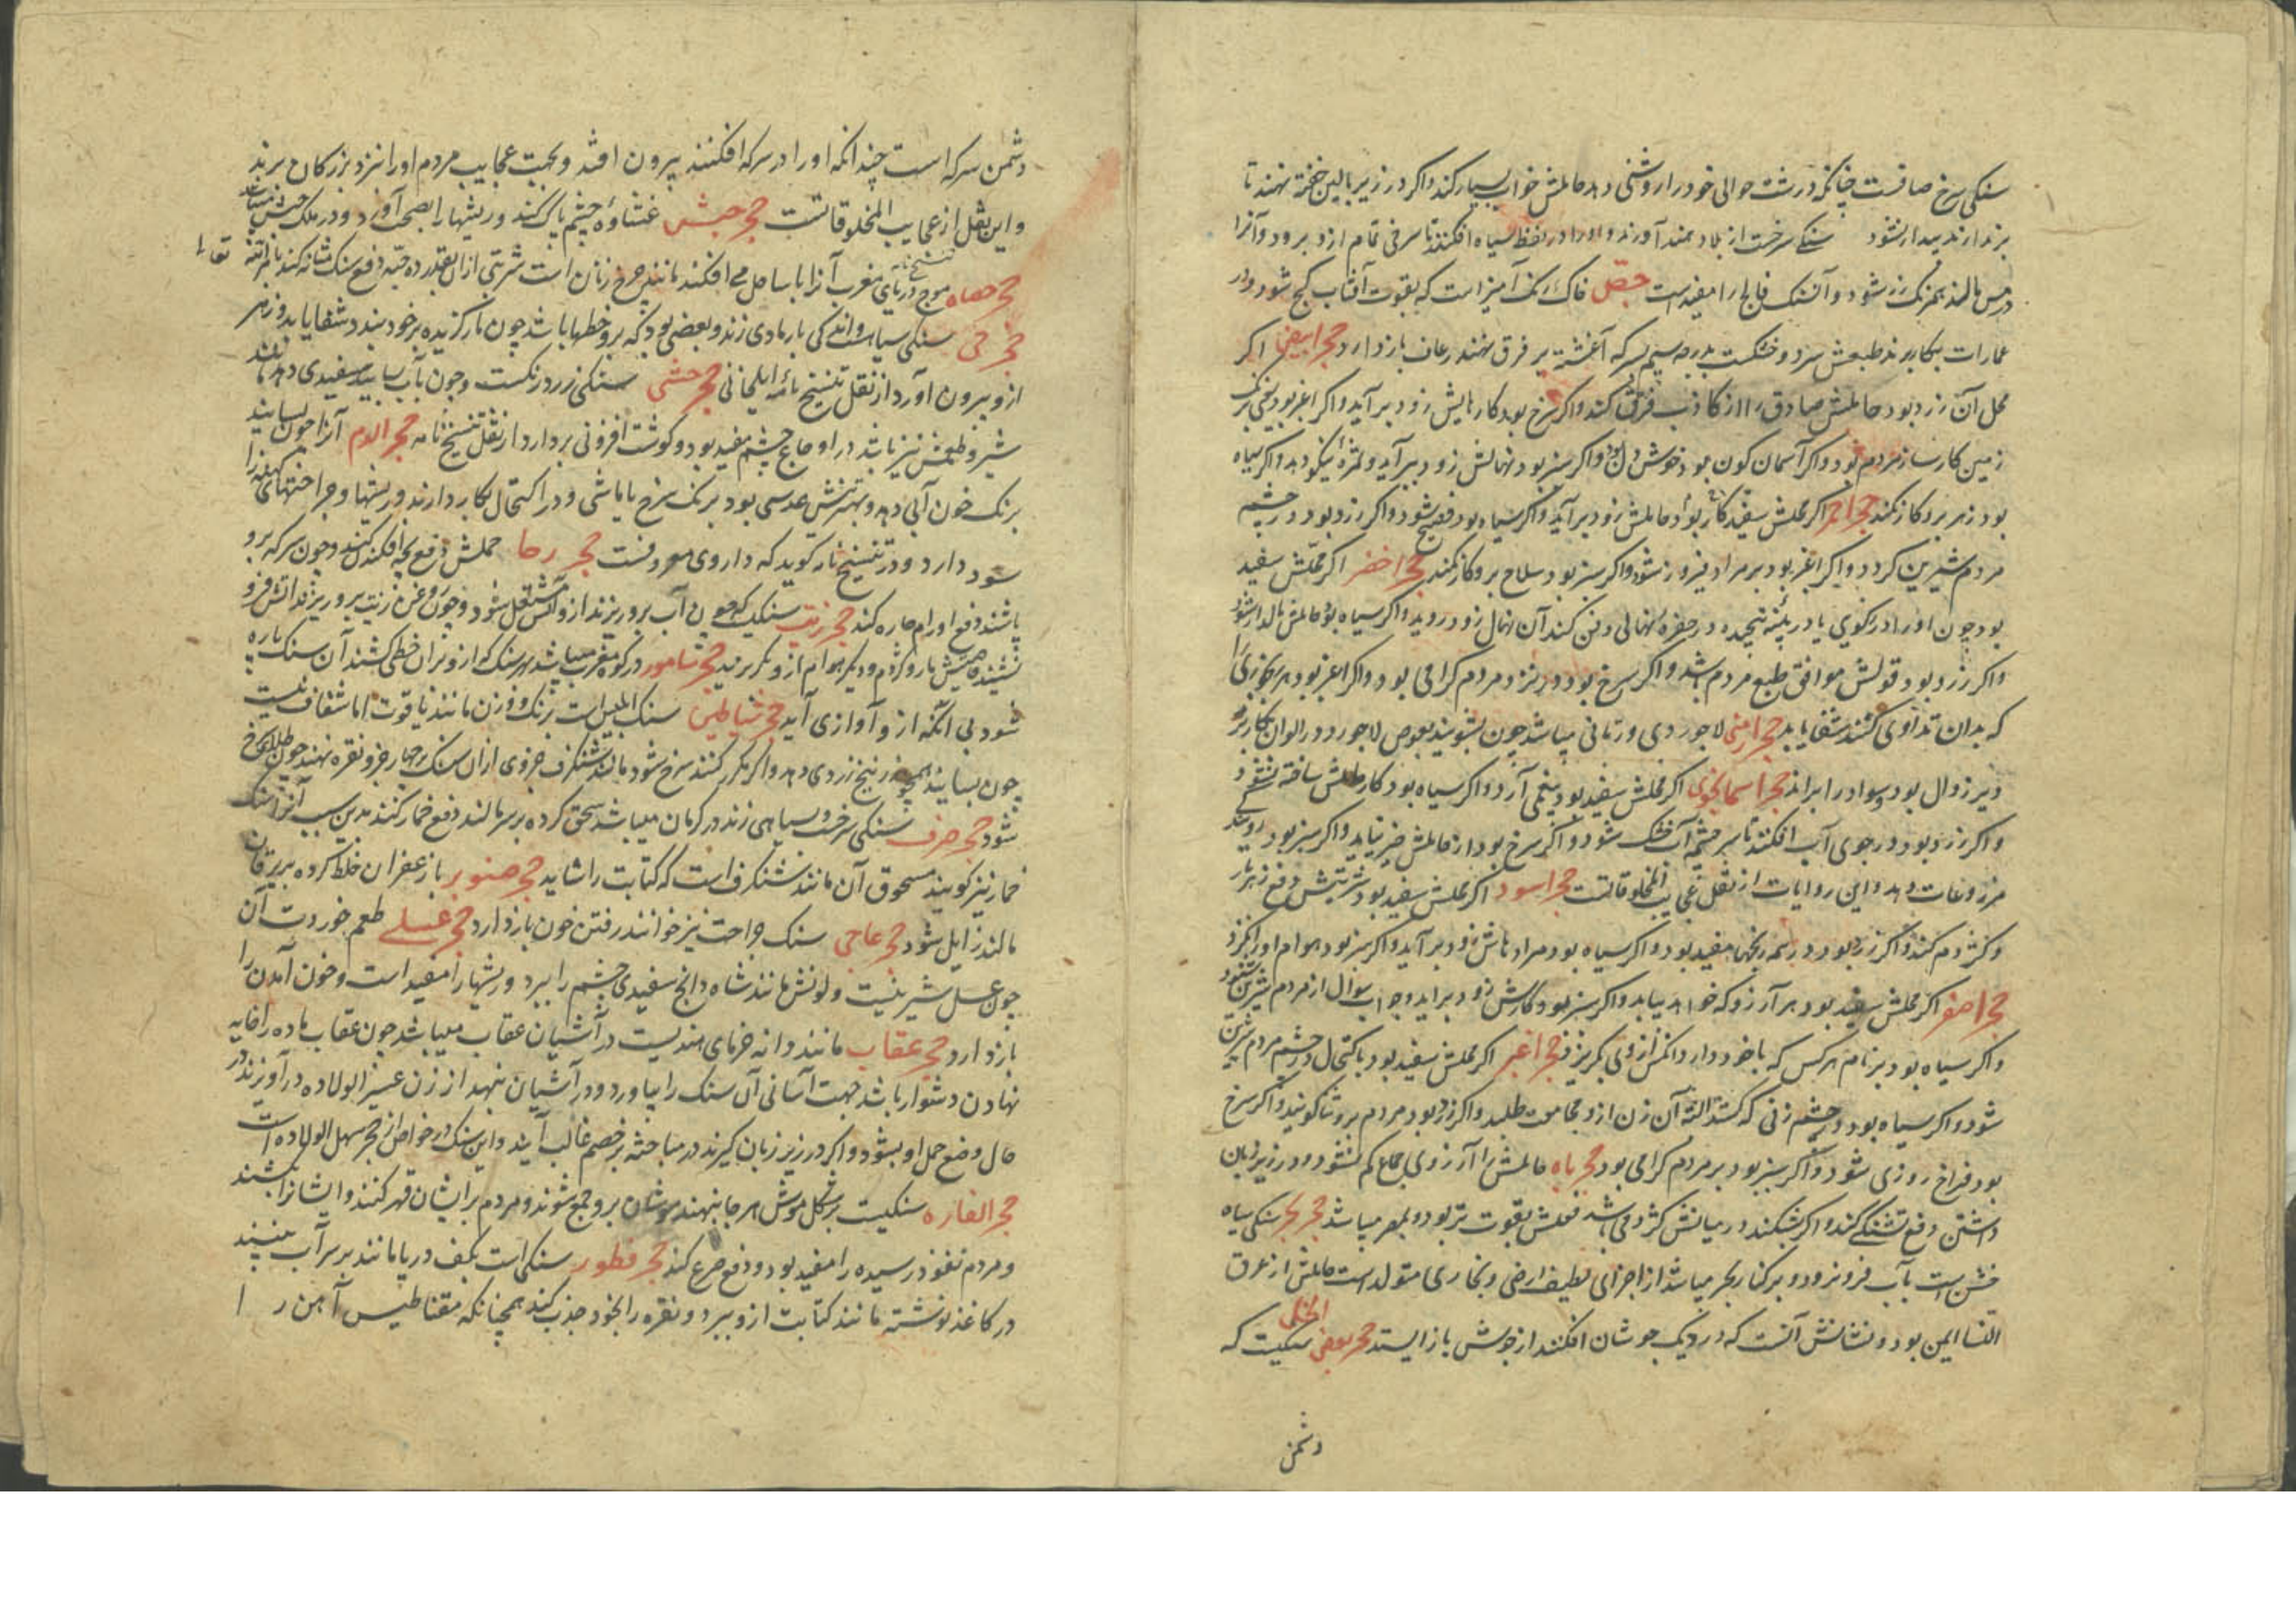 سنکی سرخ صافست چنانکه در شب حوالی خود را روشنی دهد حاملش خواب بسیار کند و اکر در زیر بالین خفته نهند تا
برندارند بیدار نشود سنکی سرخست از بلاد هند آورند و اورا در نفط سیاه افکنند تا سرخی تمام ازو برود و آنرا
در مس مالند بمرنک زر شود و آن سنک فالج را مفید است جص خاک سنک آمیز است که بقوت آفتاب کچ شود و در
عمارات بکار برند طبعش سرد و خشکست بدرجه سیم بسرکه آغشته بر فرق نهند رعاف باز دارد حجر ابیض اکر
محل آن زرد بود حاملش صادق را از کاذب فرق کند و اکر سرخ بود کارهایش زود برآید و اکر اغبر بود
زمین کارساز مردم بود و اکر آسمان کون بود خوش دل بود و اکر سبز بود نهالش زود برآید و ثمره نیکو دهد و اکر سیاه
بود زهر برو کار نکند حجر احمر اکر محلش سفید بود حاملش زود برآید و اکر سیاه بود فصیح شود و اکر زرد بود در چشم
مردم شیرین کردد و اکر اغبر بود بر مراد فیروز شود و اکر سبز بود سلاح برو کار نکند حجر اخضر اکر محلش سفید
بود چون اورا در کوی یا در پنبه پیچیده در حفره نهالی دفن کند آن نهال زود روید و اکر سیاه بود حاملش مالدار شود
و اکر زرد بود قولش موافق طبع مردم باشد و اکر سرخ بود نزد مردم کرامی بود و اکر اغبر بود هر رنجوری را
که بدان تداوی کنند شفا یابد حجر ارمنی لاجوردی و رمانی میباشد چون بشویند بعوض لاجورد در الوان بکار برند
دیر زوال بود و سودا را براند حجر اسمانجونی اکر محلش سفید بود آرد و اکر سیاه بود کار حاملش ساخته نشود
و اکر زرد بود در جوی آب افکنند تا سرچشمه آب خشک شود و اکر سرخ بود از حاملش خیر نیاید و اکر سبز بود
مزروعات دهد و این روایات از نقل عجایب المخلوقاتست حجر اسود اکر محلش سفید بود شربتش دفع زهر مار
و کژدم کند و اکر زرد بود در همه رنجها مفید بود و اکر سیاه بود مرادهاش زود برآید و اکر سبز بود هوام اورا نکزد
حجر اصفر اکر محلش سفید بود هر آرزو که خواهد بیابد و اکر سبز بود کارش زود برآید و جواب سوال از مردم شیرین شنود
و اکر سیاه بود بر نام هر کس که با خود دارد آنکس از وی نکریزد حجر اغبر اکر محلش سفید بود باکتحال در چشم مردم شیرین
شود و اکر سیاه بود در چشم زنی که کشد البته آن زن ازو مجامعت طلبد و اکر زرد بود مردم برو ثنا کویند و اکر سرخ
بود فراخ روزی شود و اکر سبز بود بر مردم کرامی بود حجر باه حاملش را آرزوی جماع کم نشود و در زیر زبان
داشتن دفع تشنکی کند و اکر بشکنند در میانش کژدمی باشد فعلش بقوت تر بود و بمصر میباشد حجر بحر سنکی سیاه
خشن است بآب فرو نرود و بر کنار بحر میباشد از اجزای لطیف ارضی و بخاری متولد است حاملش از غرق
التسا ایمن بود و نشانش آنست که در دیک جوشان افکنند از جوش باز ایستد حجر بعض الخل سنکیست که
دشمن
دشمن سرکه است چندانکه اورا در سرکه افکنند بیرون افتد و بجهت عجایب مردم اورا نزد بزرکان برند
و این نقل از عجایب المخلوقاتست حجر حبش غشاوهٔ چشم پاک کند و ریشها را بصحت آورد و در ملک حبش میباشد
حجر حصاه موج دریای مغرب آنرا با ساحل می افکند مانند چرخ زنان است شربتی ازان بقدر ده حبه دفع سنک مثانه کند بامر الله تعالی
حجر حی سنکی سیاهست و اندکی بارمادی زند و بعضی بود که برو خطها باشد چون مارکزیده بر خود بندد شفا یابد و زهر
ازو بیرون آورد از نقل تنسیخ نامهٔ ایلخانی حجر خشی سنکی زرد رنکست و چون بآب بسایند سفیدی دهد مانند
شیر و طعمش تیز باشد در اوجاع چشم مفید بود و کوشت افزونی بردارد از نقل تنسیخ نامه حجر الدم آنرا چون بسایند
برنک خون آبی دهد و بهترینش عدسی بود برنک سرخ یا ماشی و در اکتحال بکار دارند و ریشها و جراحتهای کهنه را
سود دارد و در تنسیخ نامه کوید که داروی معروفست حجر رحا حملش دفع بچه افکندن کند و چون سرکه برو
پاشند دفع اورام حاره کند حجر زیت سنکیست که چون آب برو ریزند ازو آتش مشتعل شود و چون روغن زیت برو ریزند آتش فرو
نشیند مار و کژدم و دیکر هوام ازو بکریزند حجر سامور در کوه مغرب میباشد هر سنک که ازو بران خطی کشند آن سنک پاره
شود بی آنکه ازو آوازی آید حجر شیاطین سنک ابلیس است برنک و وزن مانند یاقوت اما شفاف نیست
چون بسایند همچو زرنیخ زردی دهد و اکر مکرر کنند سرخ شود مانند شنکرف جزوی ازان سنک بر چهار جزو نقره نهند چون طلای سرخ
شود حجر صرف سنکی سرخست و سیاهی زند در کرمان میباشد سحق کرده بر سر مالند دفع خمار کنند بدین سبب آنرا سنک
خمار نیز کویند مسحوق آن مانند شنکرف است که کتابت را شاید حجر صنوبر باز عفران خلط کرده بر یرقان
مالند زایل شود حجر عاجی سنک جراحت نیز خوانند رفتن خون باز دارد حجر عسلی طعم خوردن آن
چون عسل شیرینست و لونش مانند شاه دانج سفیدی چشم را ببرد و ریشها را مفید است و خون آمدن را
باز دارد حجر عقاب مانند دانه خرمای هندیست در آشیان عقاب میباشد چون عقاب ماده را خایه
نهادن دشوار باشد جهت آسانی آن سنک را بیاورد و در آشیان بنهد از زن عسیر الولاده درآویزند در
حال وضع حمل او بشود و اکر در زیر زبان کیرند در مباحثه بر خصم غالب آیند و این سنک در خواص از حجر سهل الولاده است
حجر الفاره سنکیست بر شکل موش هر جا بنهند موشان برو جمع شوند و مردم بر ایشان قهر کنند و ایشانرا بکشند
و مردم نفوذ رسیده را مفید بود و دفع صرع کند حجر قطور سنکی است بکف دریا مانند بر سر آب بنشیند
در کاغذ نوشته مانند کتابت ازو ببرد و نقره را بخود جذب کند همچنانکه مقناطیس آهن را